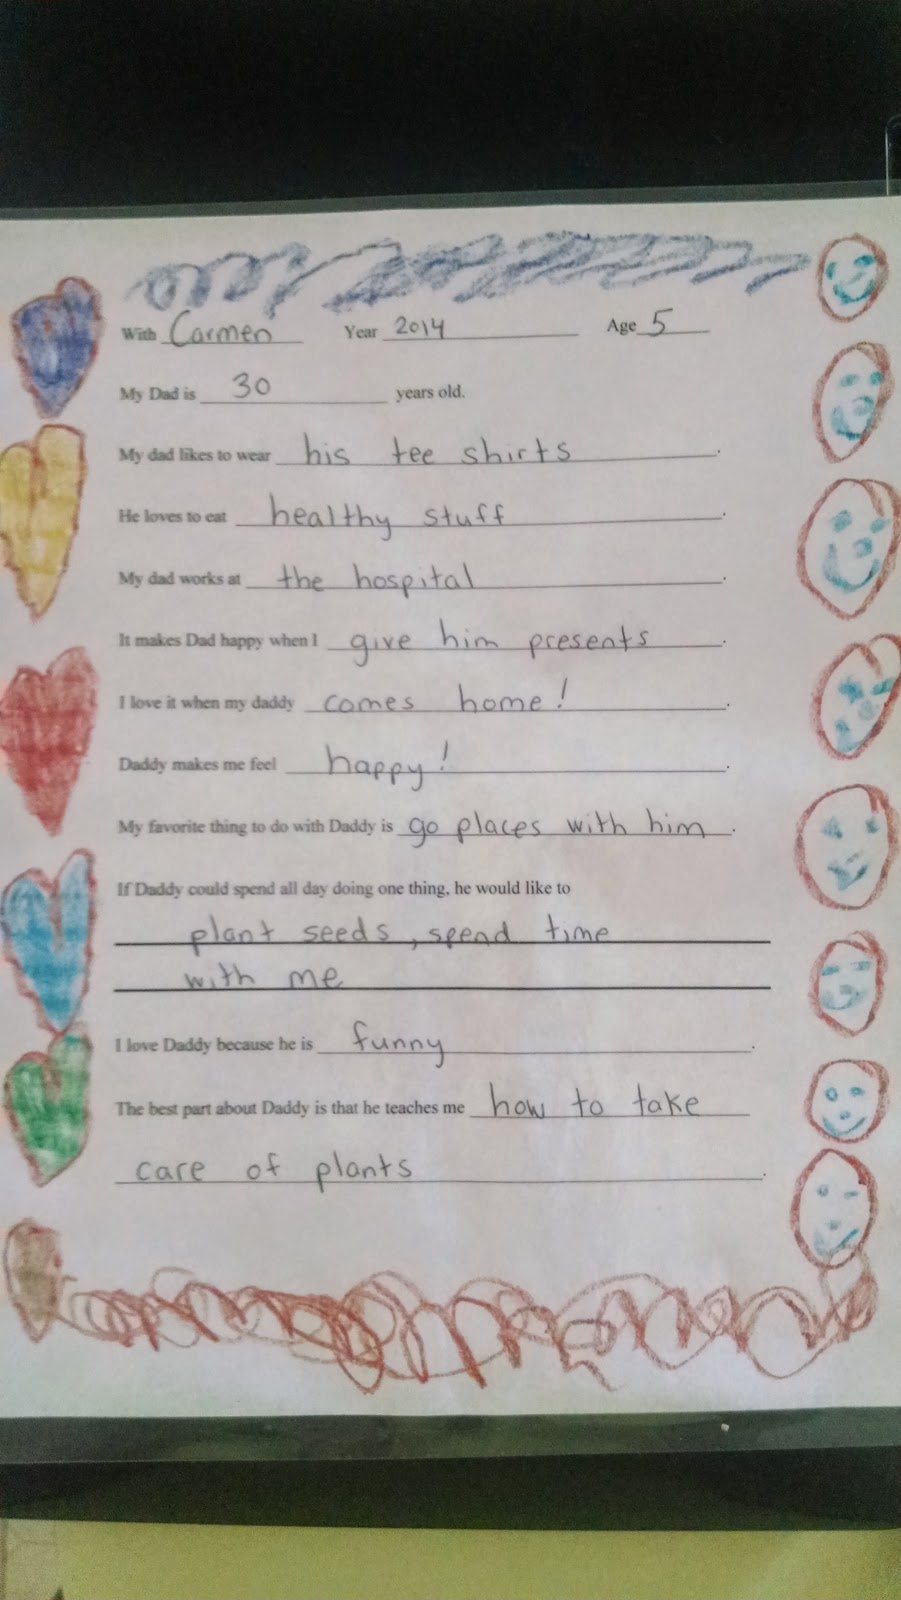 With Carmen Year 2014 Age 5
My Dad is 30 years old.
My dad likes to wear his tee shirts.
He loves to eat healthy stuff.
My dad works at the hospital.
It makes Dad happy when I give him presents.
I love it when my daddy comes home!.
Daddy makes me feel happy!.
My favorite thing to do with Daddy is go places with him.
If Daddy could spend all day doing one thing, he would like to
plant seeds, spend time
with me
I love Daddy because he is funny.
The best part about Daddy is that he teaches me how to take
care of plants.